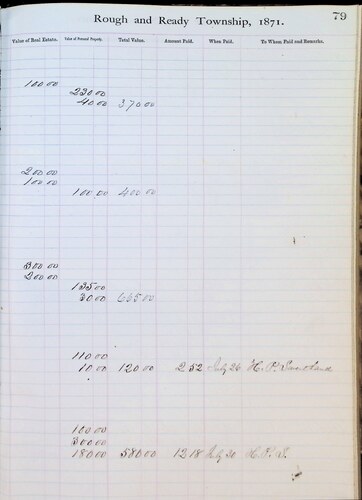 79
Rough and Ready Township, 1871.
Value of Real Estate. Value of Personal Property. Total Value. Amount Paid. When Paid. To Whom Paid and Remarks.
100 00
230 00
40 00 370 00
200 00
100 00
100 00 400 00
300 00
200 00
135 00
30 00 665 00
110 00
10 00 120 00 2 52 July 26 H. P.
100 00
300 00
180 00 580 00 12 18 July 30 H. P. S.